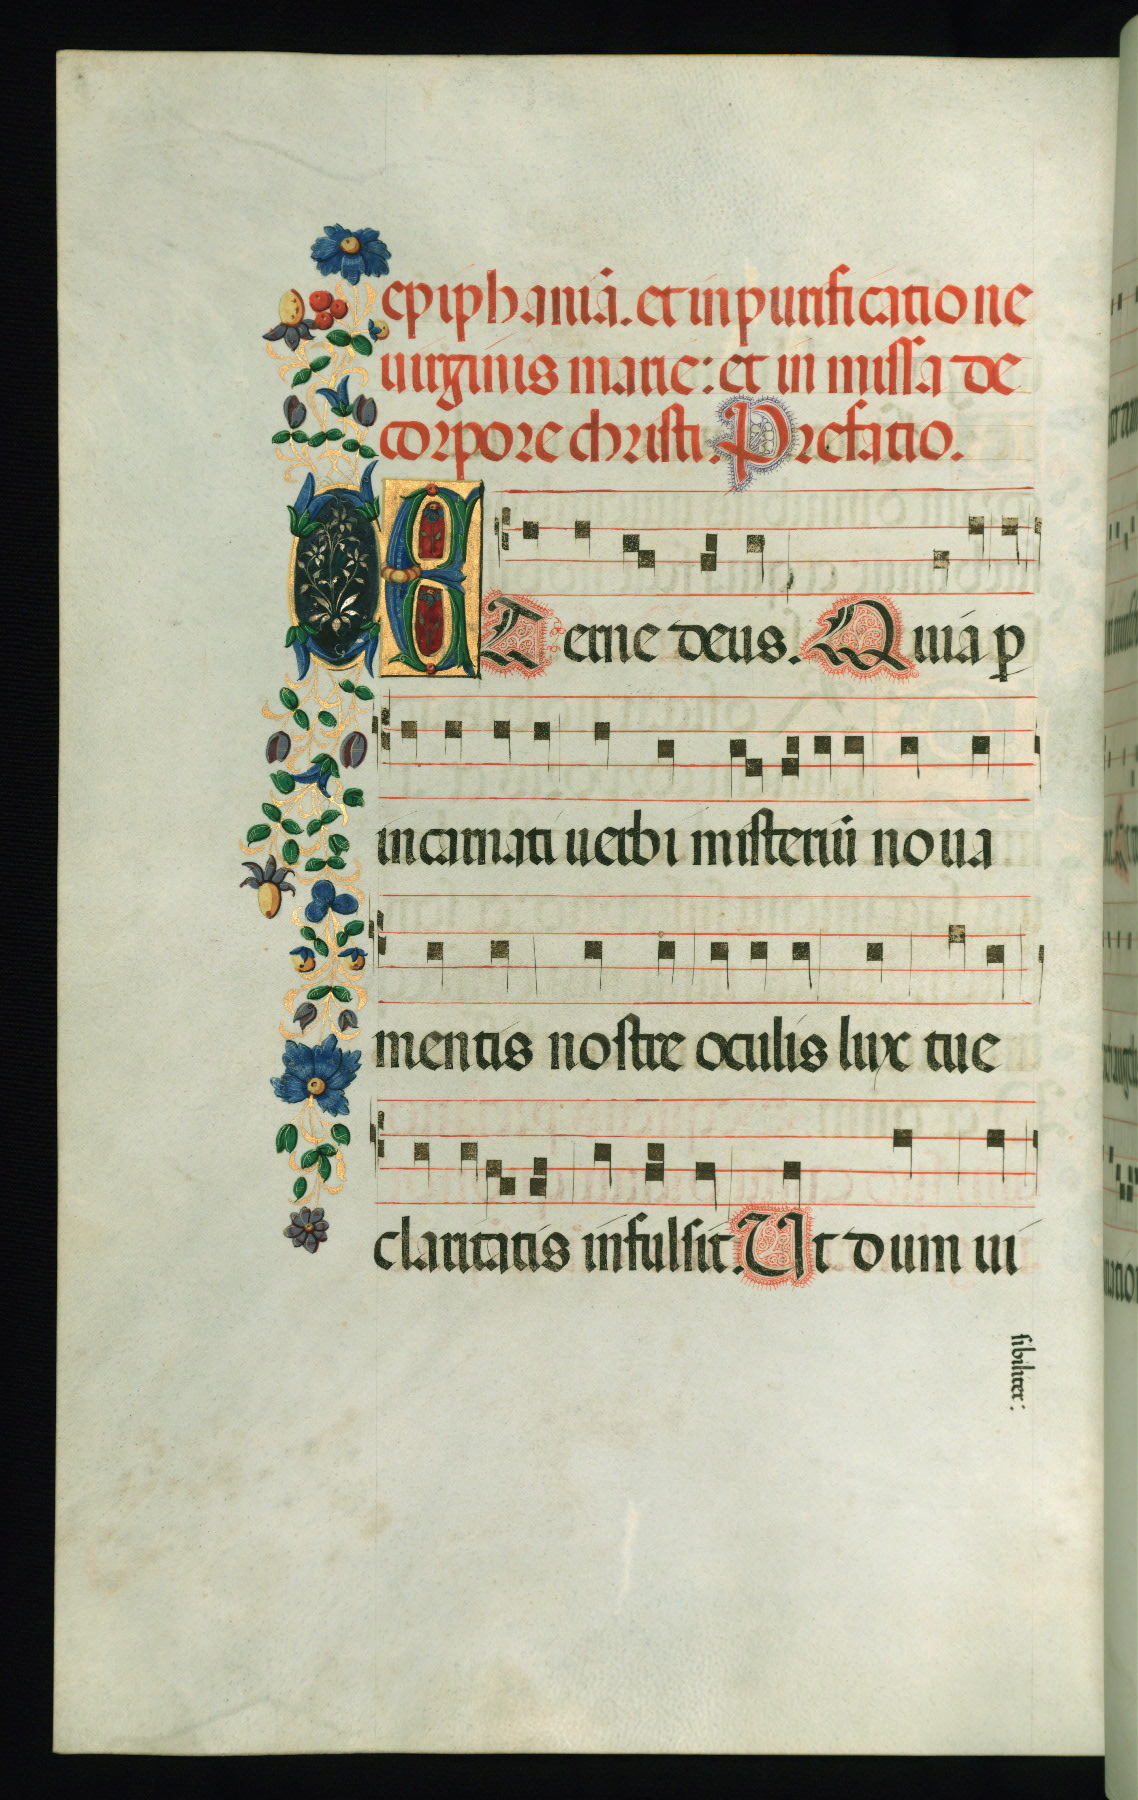 epiphaniā. et in purificatione
uirginis marie: et in missa de
corpore christi. Prefatio.
ETerne deus. Quia p
incarnati uerbi misteriū noua
mentis nostre oculis lux tue
claritatis infulsit. Ut dum ui
sibiliter: